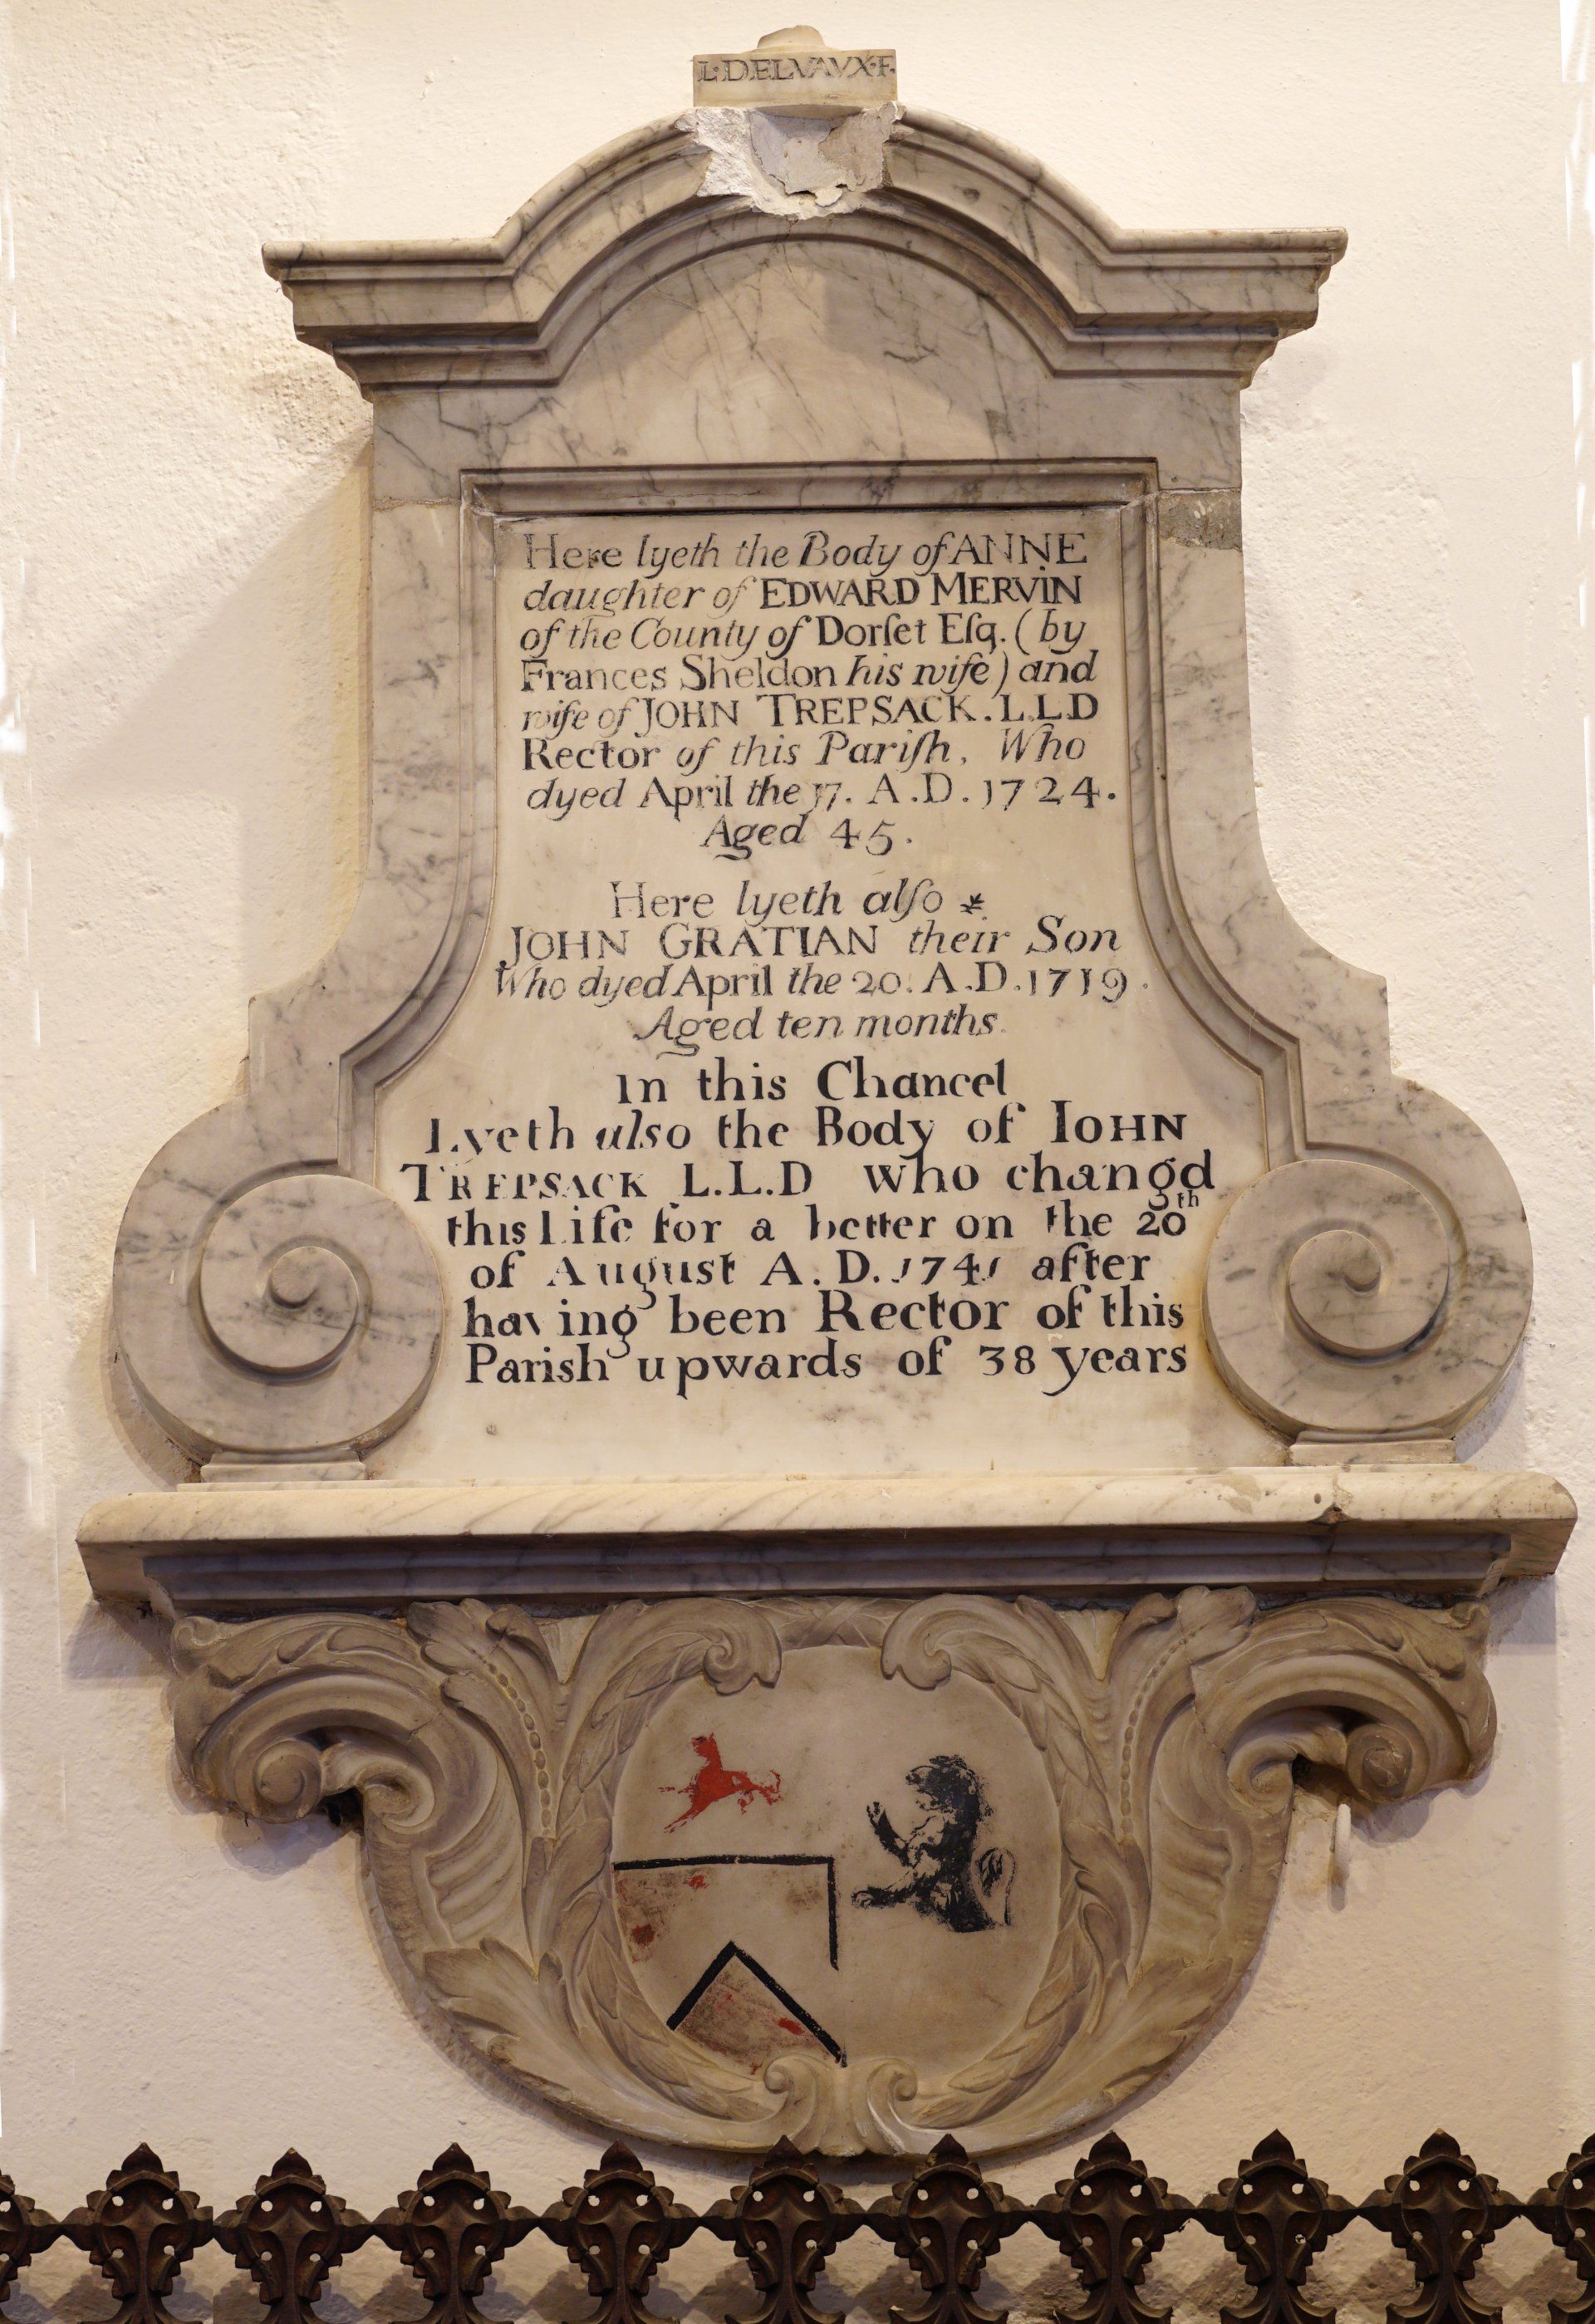 L·DELVAVX·F.
Here lyeth the Body of ANNE
daughter of EDWARD MERVIN
of the County of Dorſet Eſq. (by
Frances Sheldon his wife) and
wife of JOHN TREPSACK. L.L.D
Rector of this Pariſh, Who
dyed April the 17. A.D. 1724.
Aged 45.
Here lyeth alſo
JOHN GRATIAN their Son
Who dyed April the 20. A.D. 1719.
Aged ten months.
In this Chancel
Lyeth also the Body of IOHN
TREPSACK L.L.D who changd
this Life for a better on the 20th
of August A.D. 1741 after
having been Rector of this
Parish upwards of 38 years